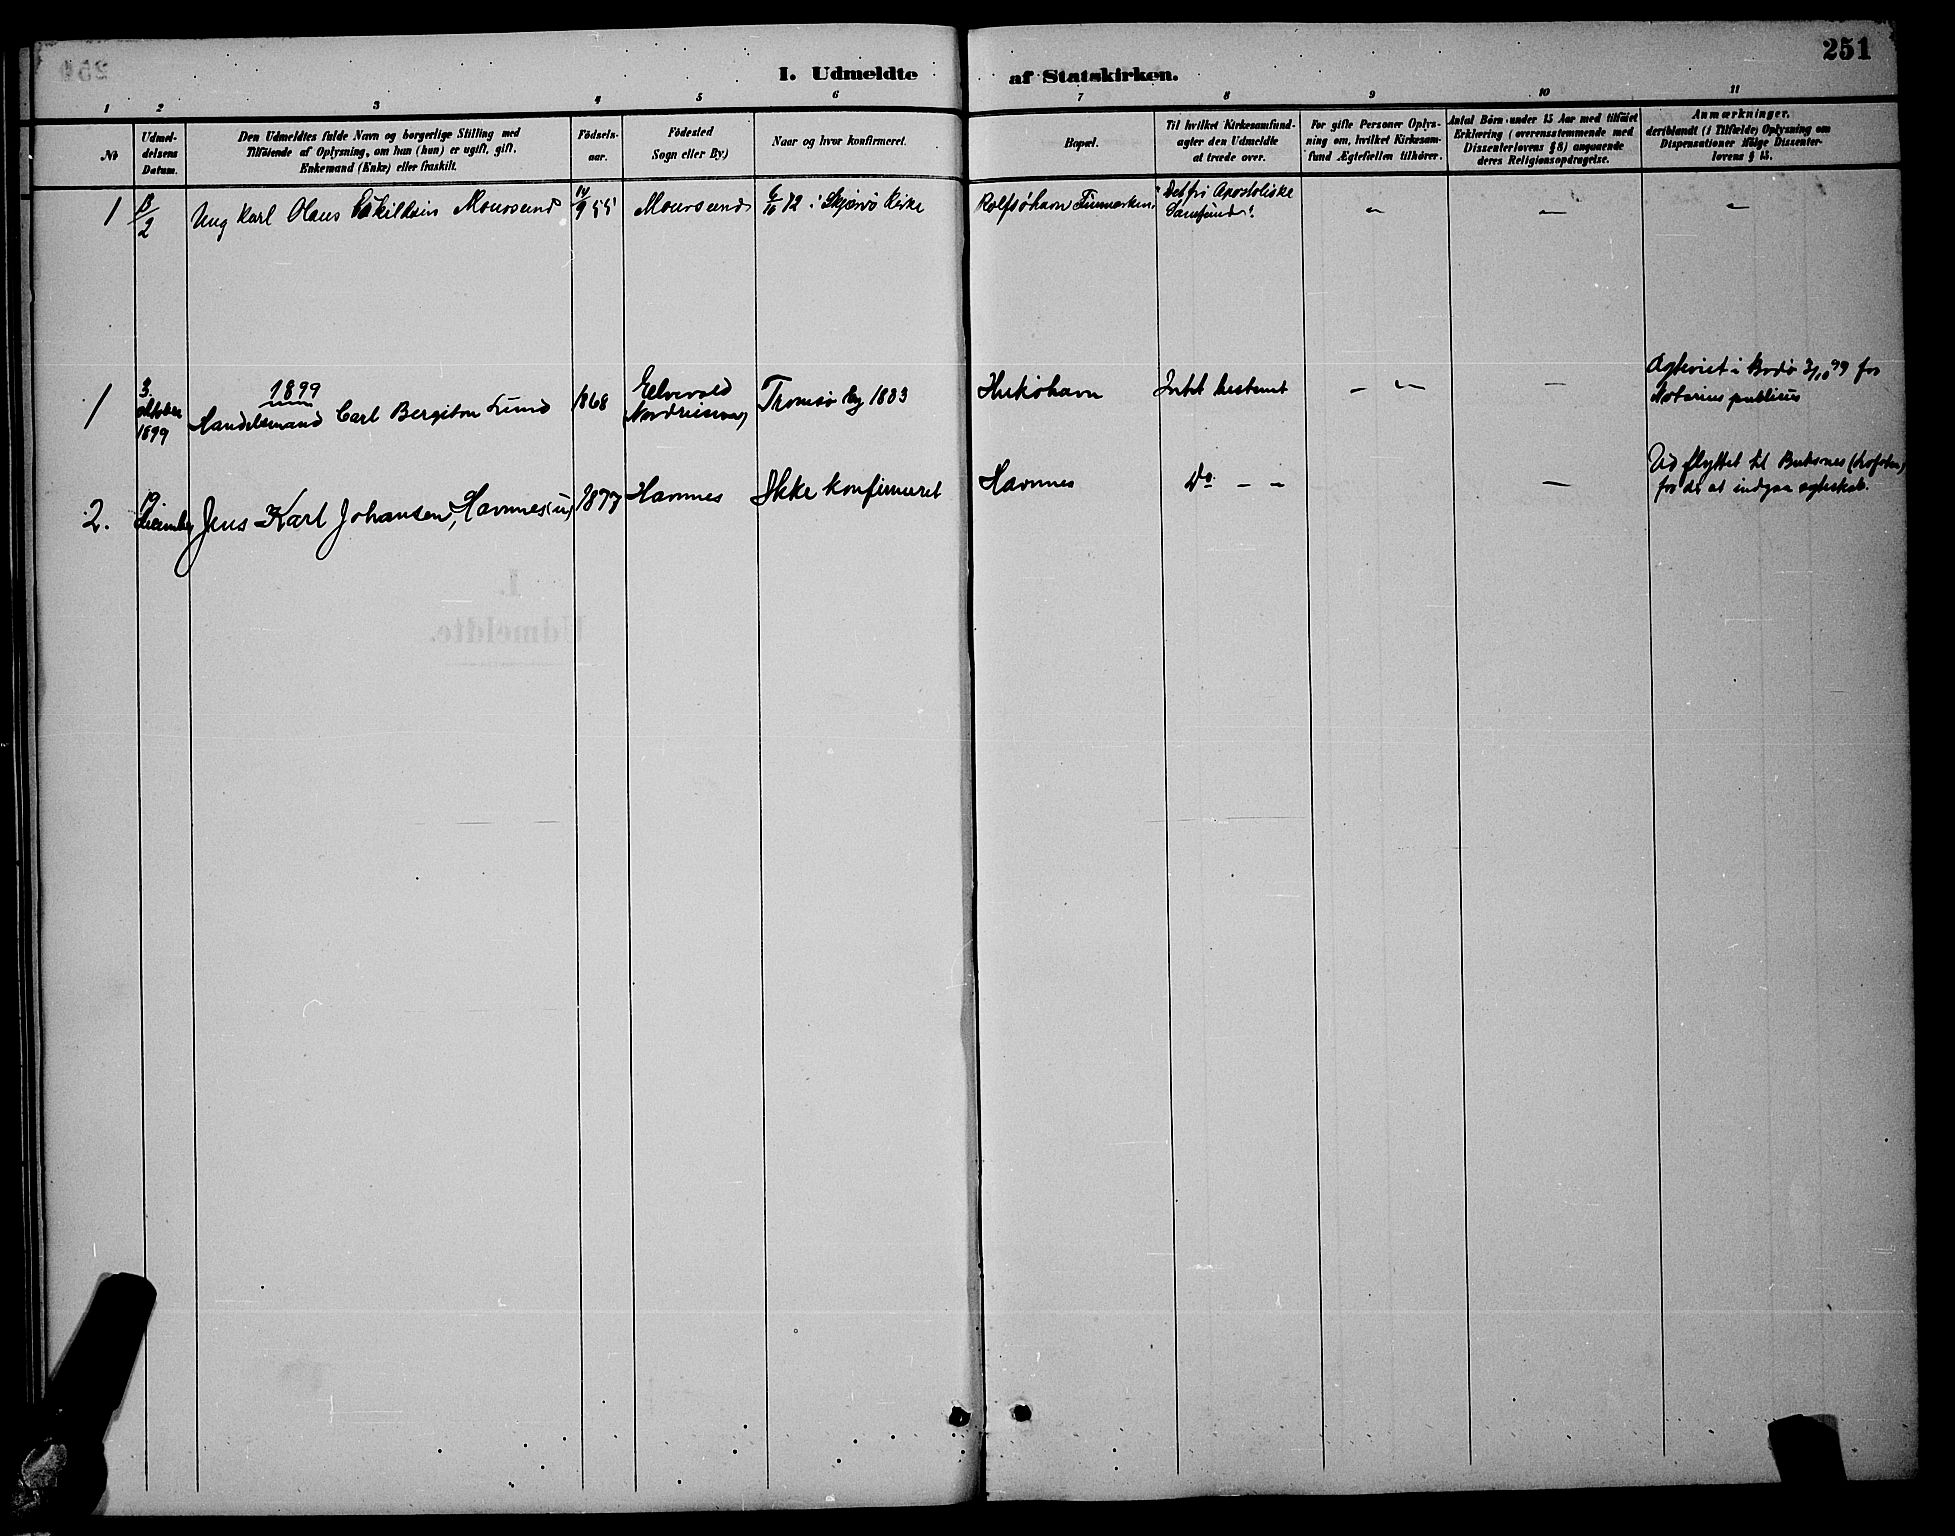 251
I. Udmeldte af Statskirken.
1 2 3 4 5 6 7 8 9 10 11
№
Udmel-
delsens
Datum.
Den Udmeldtes fulde Navn og borgerlige Stilling med
Tilföiende af Oplysning, om han (hun) er ugift, gift,
Enkemand (Enke) eller fraskilt.
Födsels-
aar.
Födested
Sogn eller By)
Naar og hvor konfirmeret.
Bopæl.
Til hvilket Kirkesamfund
agter den Udmeldte
at træde over.
For gifte Personer Oplys-
ning om, hvilket Kirkesam-
fund Ægtefællen tilhörer.
Antal Börn under 15 Aar med tilföiet
Erklæring (overensstemmende med
Dissenterlovens § 8) angaaende
deres Religionsopdragelse.
Anmærkninger,
deriblandt (i Tilfælde) Oplysning om
Dispensationer ifölge Dissenter-
lovens § 15.
1
Ung Karl Olaus Maursund
Maursund
6/10 72 i Skjervö Kirke
Rolfsöhavn Finmarken
"Det fri Apostoliske
Samfund".
1899
1
3.
oktober
1899
Handelsmand Carl Bergiton Lund
1868
Elvevold
Nordreisen)
Tromsö By 1883
Intet bestemt
Ægteviet i Bodö 3/10 99 for
Notarius publicus
2.
19
December
Jens Karl Johansen, Havnnes (u)
1877
Havnnes
Ikke konfirmeret
Havnnes
Do - -
Udflyttet til Buksnes (Lofoten)
for der at indgaa egteskab.
I.
Udmeldte.